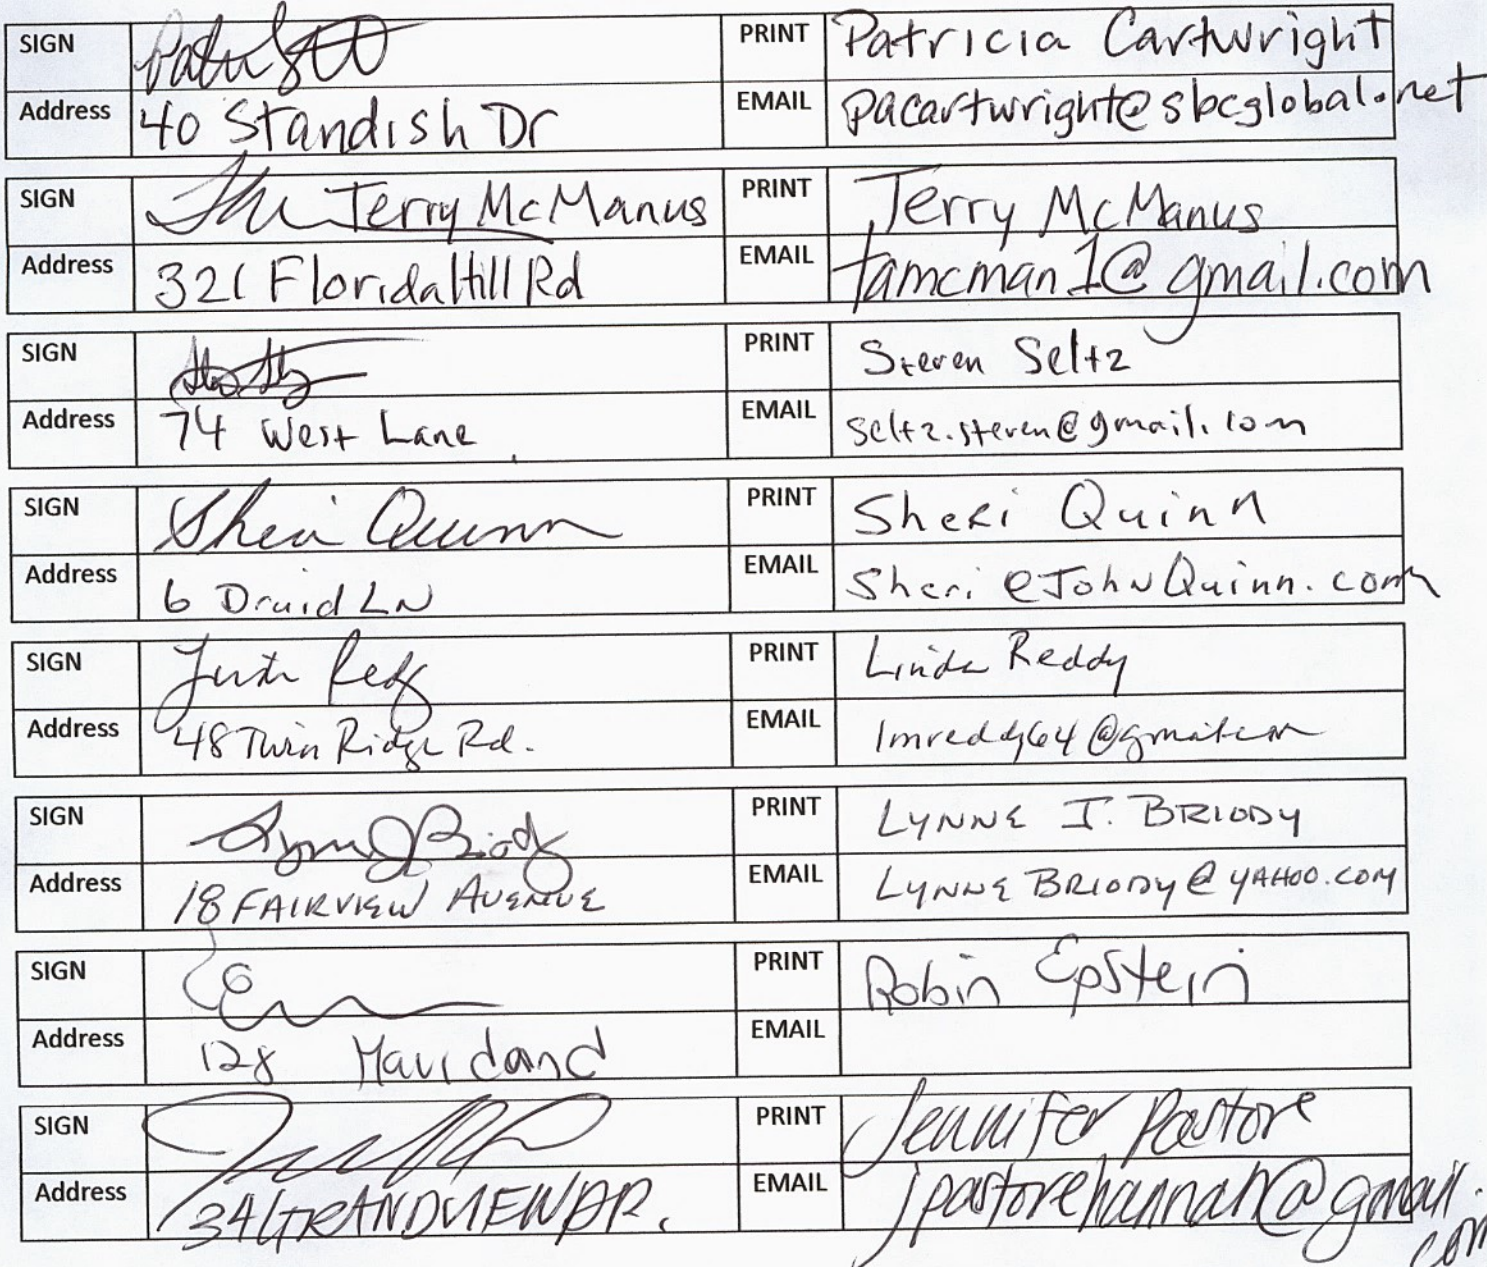 SIGN PRINT Patricia Cartwright
Address 40 Standish Dr EMAIL pacartwright@sbcglobal.net
SIGN Terry McManus PRINT Terry McManus
Address 321 Florida Hill Rd EMAIL tamcman1@gmail.com
SIGN PRINT Steven Seltz
Address 74 West Lane EMAIL seltz.steven@gmail.com
SIGN Sheri Quinn PRINT Sheri Quinn
Address 6 Druid LN EMAIL Sheri@JohnQuinn.com
SIGN PRINT Linda Reddy
Address 48 Twin Ridge Rd. EMAIL lmreddy64@gmail.com
SIGN Lynne J Briody PRINT LYNNE J. BRIODY
Address 18 FAIRVIEW AVENUE EMAIL LYNNE BRIODY@YAHOO.COM
SIGN PRINT Robin Epstein
Address 128 EMAIL
SIGN PRINT Jennifer Pastore
Address 34 GRANDVIEW DR. EMAIL jpastorehannah@gmail.com